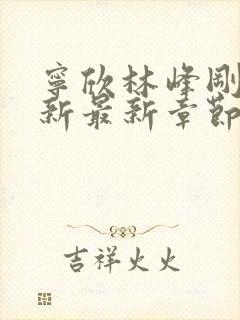 寧欣林峰剛
新最新章節
吉祥火火